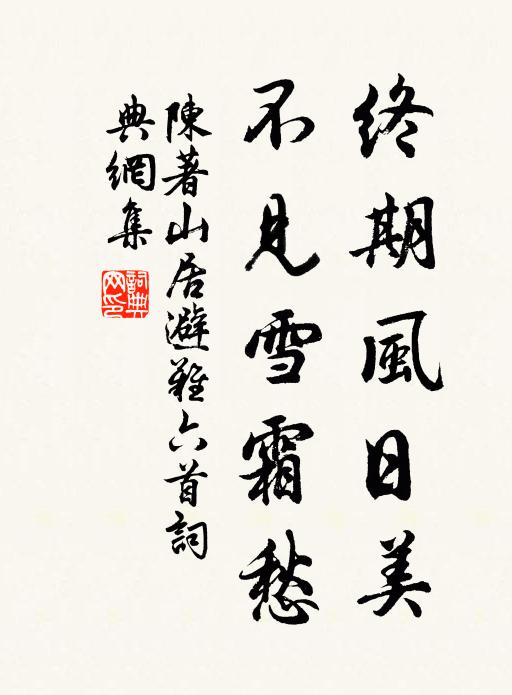 終期風日美
不見雪霜愁
陳著山居避難六首詞
典網集
詞典
网印